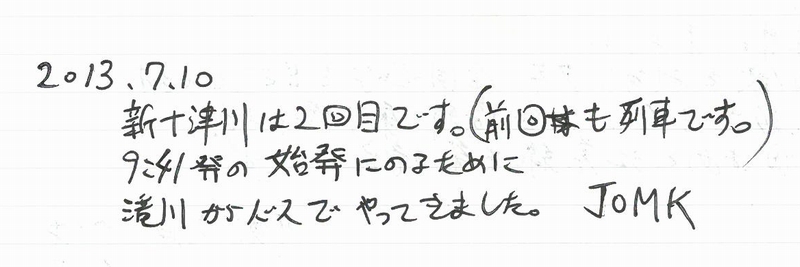 2013.7.10
新十津川は2回目です。(前回も列車です。)
9:41発の始発にのるために
滝川からバスでやってきました。 JOMK